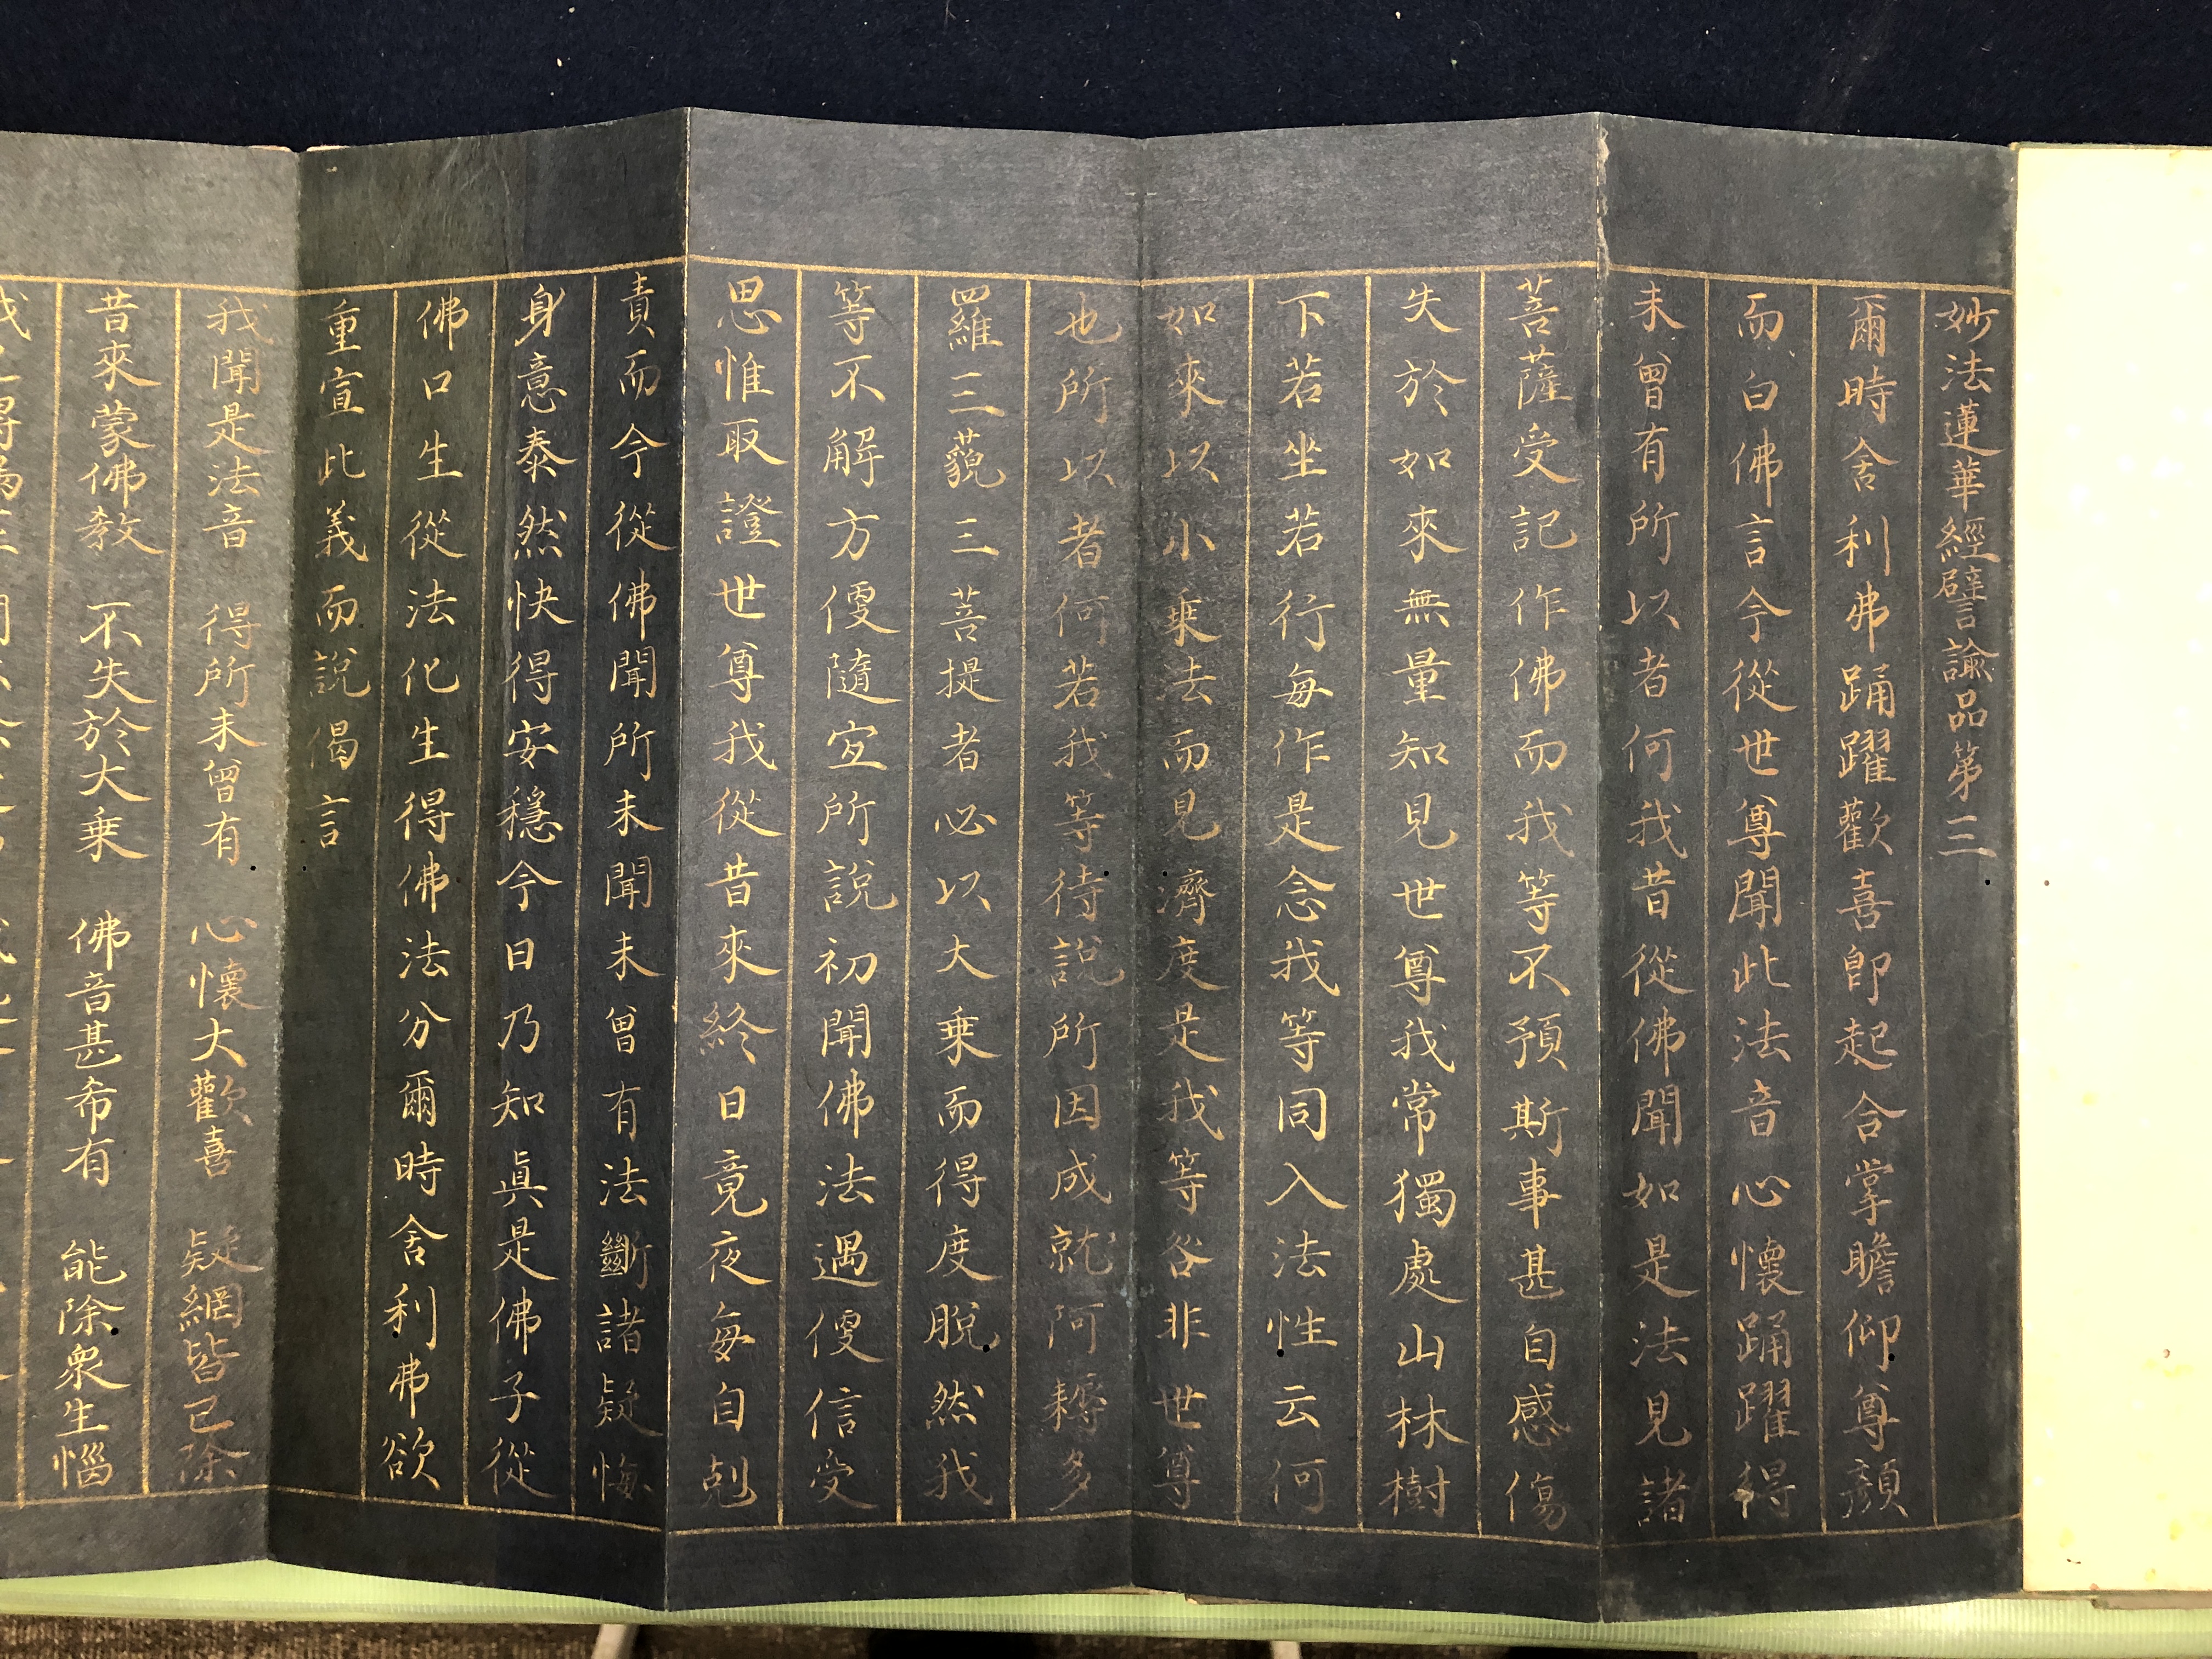 妙法蓮華經譬諭品第三
爾時舍利弗踊躍歡喜卽起合掌瞻仰尊顏
而白佛言今從世尊聞此法音心懷踊躍得
未曾有所以者何我昔從佛聞如是法見諸
菩薩受記作佛而我等不預斯事甚自感傷
失於如來無量知見世尊我常獨處山林樹
下若坐若行每作是念我等同入法性云何
如來以小乗法而見濟度是我等咎非世尊
也所以者何若我等待說所因成就阿耨多
羅三藐三菩提者必以大乗而得度脫然我
等不解方便隨宜所說初聞佛法遇便信受
思惟取證世尊我從昔來終日竟夜每自剋
責而今從佛聞所未聞未曾有法斷諸疑悔
身意泰然快得安穩今日乃知眞是佛子從
佛口生從法化生得佛法分爾時舍利弗欲
重宣此義而說偈言
我聞是法音 得所未曾有 心懷大歡喜 疑網皆已除
昔來蒙佛敎 不失於大乗 佛音甚希有 能除衆生惱